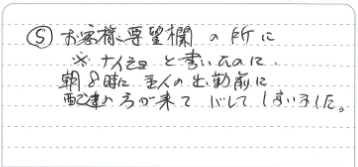 ⑤ お客様要望欄の所に
※ナイショ と書いたのに、
朝8時に主人の出勤前に
配達の方が来て バレて しまいました。